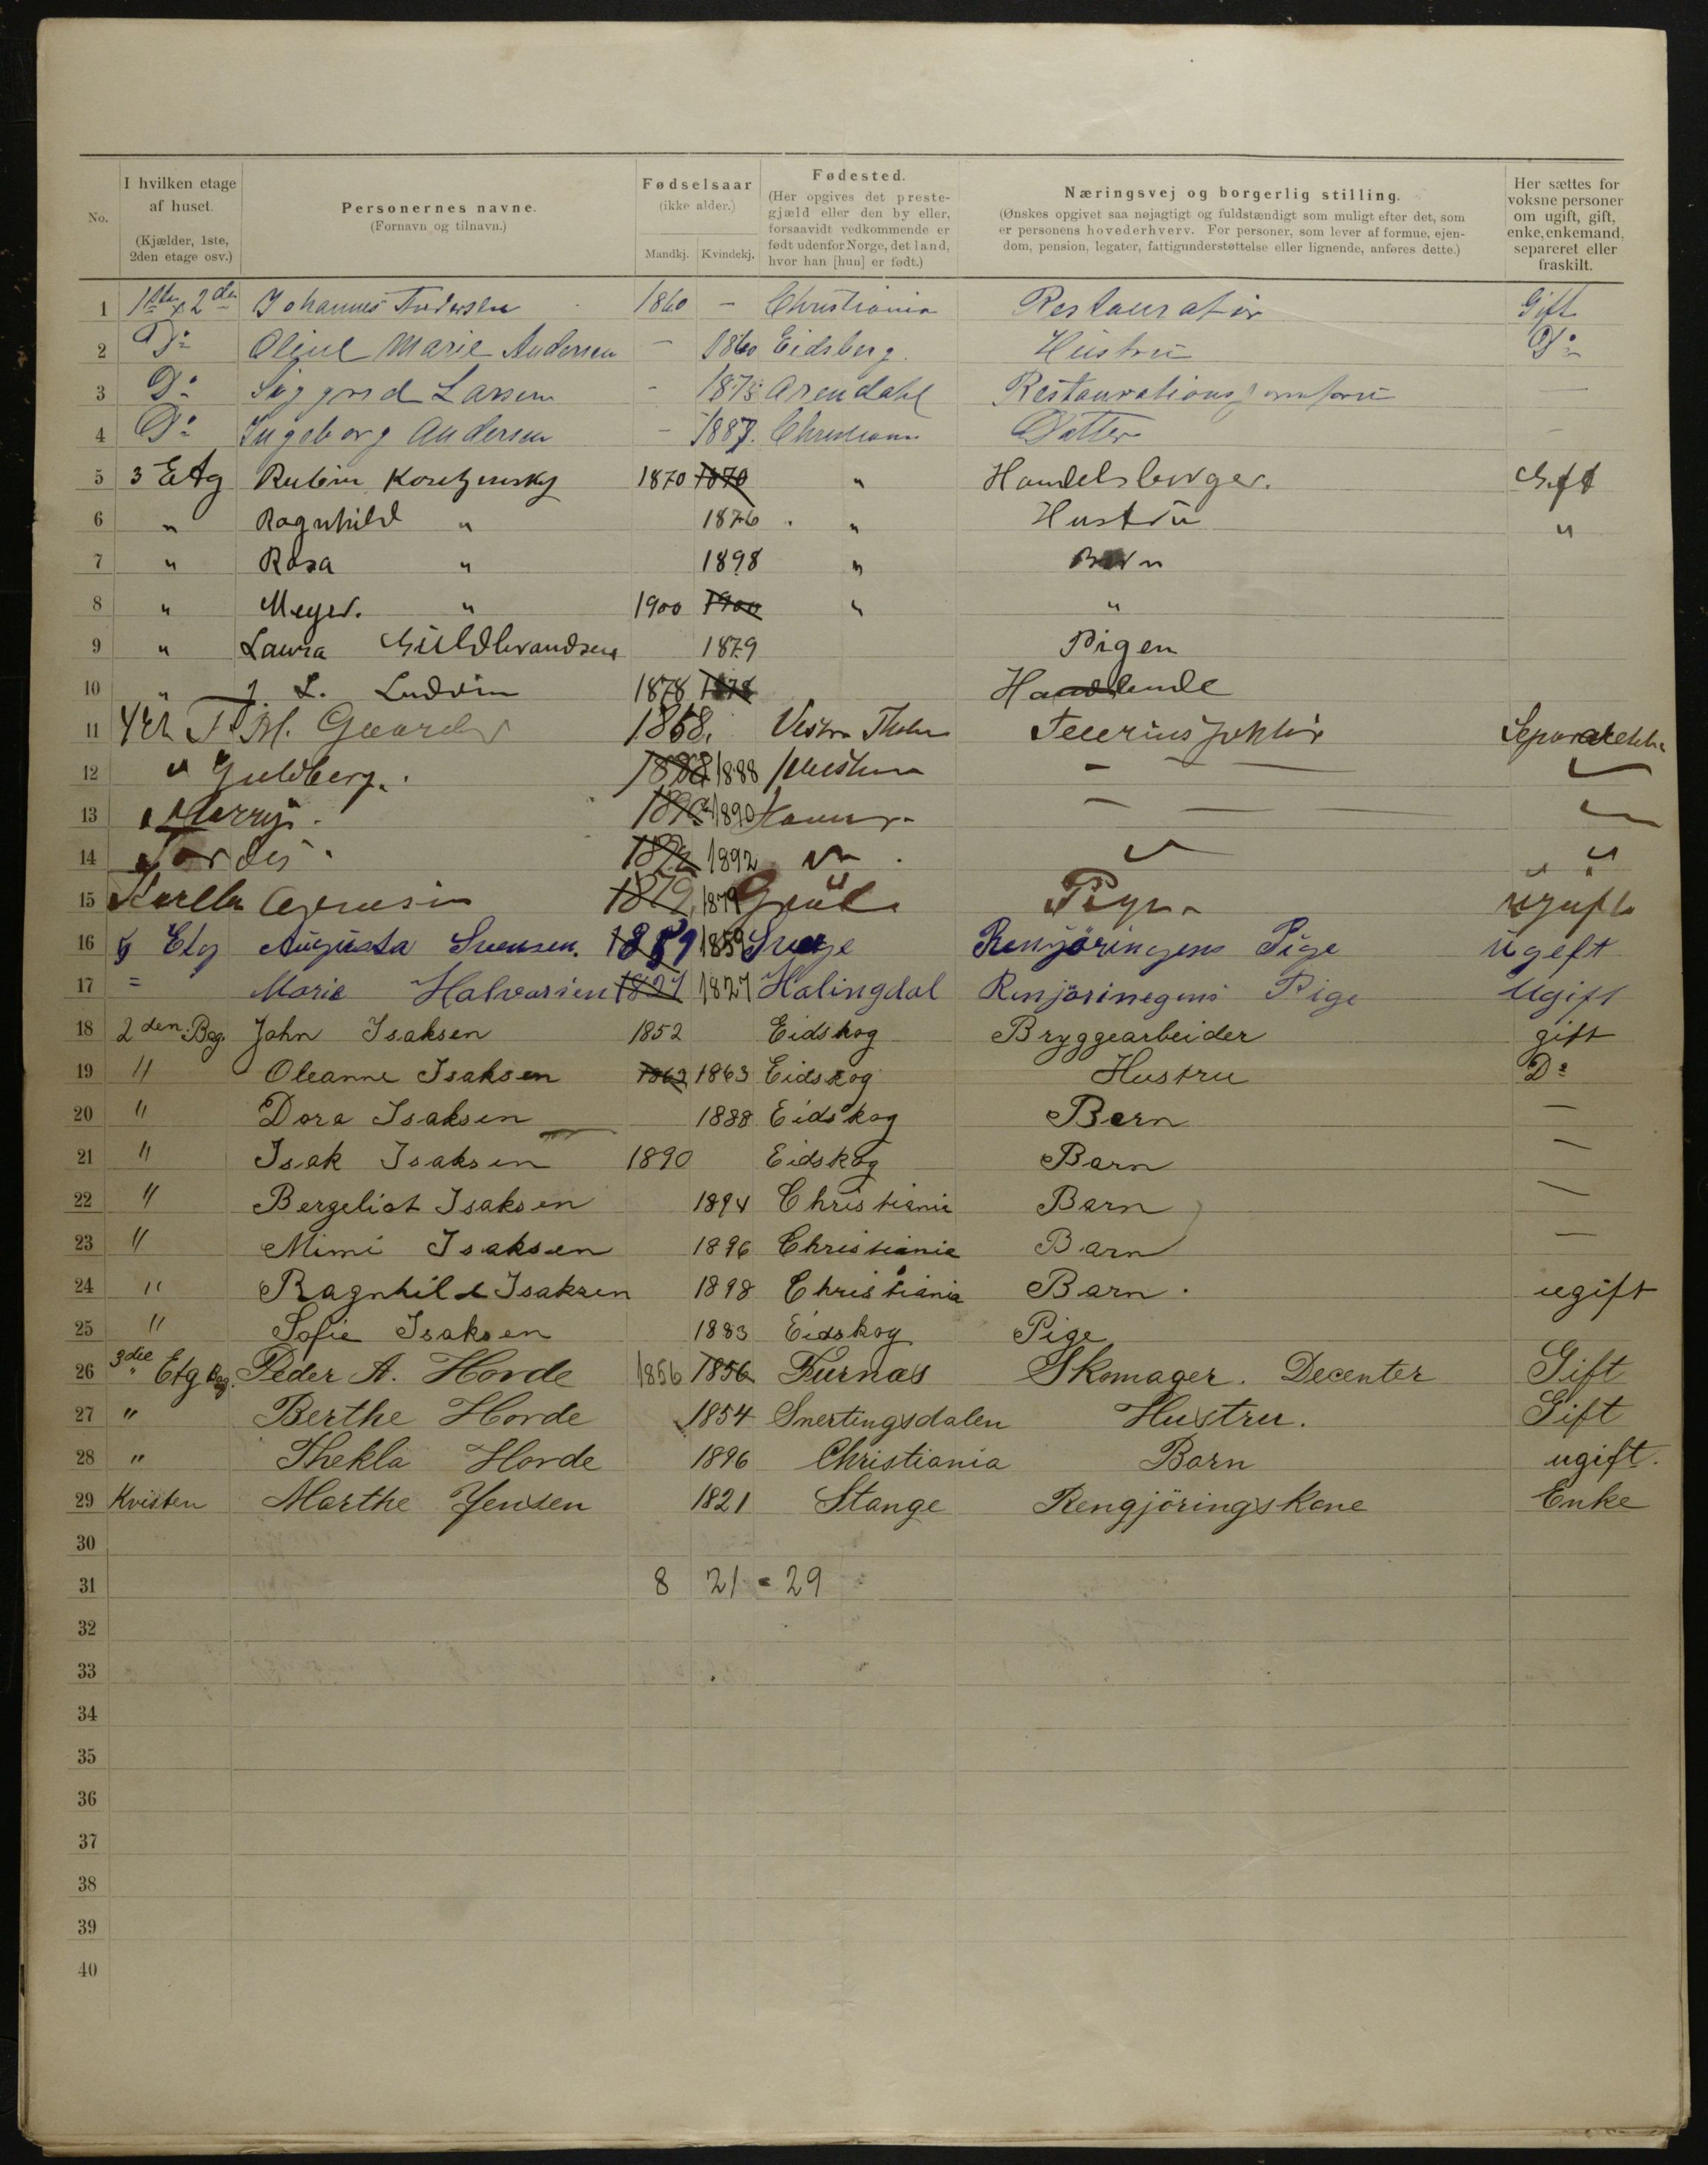 No.
I hvilken etage af huset.
(Kjælder, 1ste, 2den etage osv.)
Personernes navne.
(Fornavn og tilnavn.)
Fødselsaar
(ikke alder.)
Mandkj. Kvindekj.
Fødested.
(Her opgives det prestegjæld eller den by eller, forsaavidt vedkommende er født udenfor Norge, det land, hvor han [hun] er født.)
Næringsvej og borgerlig stilling.
(Ønskes opgivet saa nøjagtigt og fuldstændigt som muligt efter det, som er personens hovederhverv. For personer, som lever af formue, ejendom, pension, legater, fattigunderstøttelse eller lignende, anføres dette.)
Her sættes for voksne personer om ugift, gift, enke, enkemand, separeret eller fraskilt.
1 1ste & 2den Johannes Andersen 1860 – Christiania Restauratør Gift
2 Do Oline Marie Andersen – 1860 Eidsberg. Hustru Do
3 Do Larsen - 1875 Arendahl –
4 Do Ingeborg Andersen – 1887. Christiania Datter –
5 3 Etg Rubin 1870 1870 " Handelsborger. Gift
6 " Ragnhild " 1876 " Hustru "
7 " Rosa " 1898 " Barn
8 " Meyer. " 1900 1900 " "
9 " Laura Guldbrandsen 1879 Pigen
10 " J L. Ludvin 1878 1878 Handlende
11 4 M. 1868. Vestre
12 " Guldberg. 1888 1888
13 1890 1890
14 1892 1892
15 1879 1879 Pige ugift
16 Etg Augusta Svensen. 1859 1859 Renjøringens Pige ugift
17 = Marie Halvorsen 1827 1827 Halingdal Renjørinegens Pige Ugift
18 2den. Bag. John Isaksen 1852 Eidskog Bryggearbeider gift
19 " Oleanne Isaksen 1863 1863 Eidskog Hustru Do
20 " Dora Isaksen 1888 Eidskog Barn –
21 " Isak Isaksen 1890 Eidskog Barn –
22 " Bergeliot Isaksen 1894 Christiania Barn –
23 " Mimi Isaksen 1896 Christiania Barn –
24 " Ragnhild Isaksen 1898 Christiania Barn . ugift
25 " Sofie Isaksen 1883 Eidskog Pige
26 3die Etg Bag. Peder A. Horde 1856 1856 Furnæs Skomager. Decenter Gift
27 " Berthe Horde 1854 Snertingsdalen Hustru. Gift
28 " Thekla Horde 1896 Christiania Barn ugift.
29 Kvisten Marthe Jensen 1821 Stange Rengjøringskone Enke
30
31 8 21 = 29
32
33
34
35
36
37
38
39
40